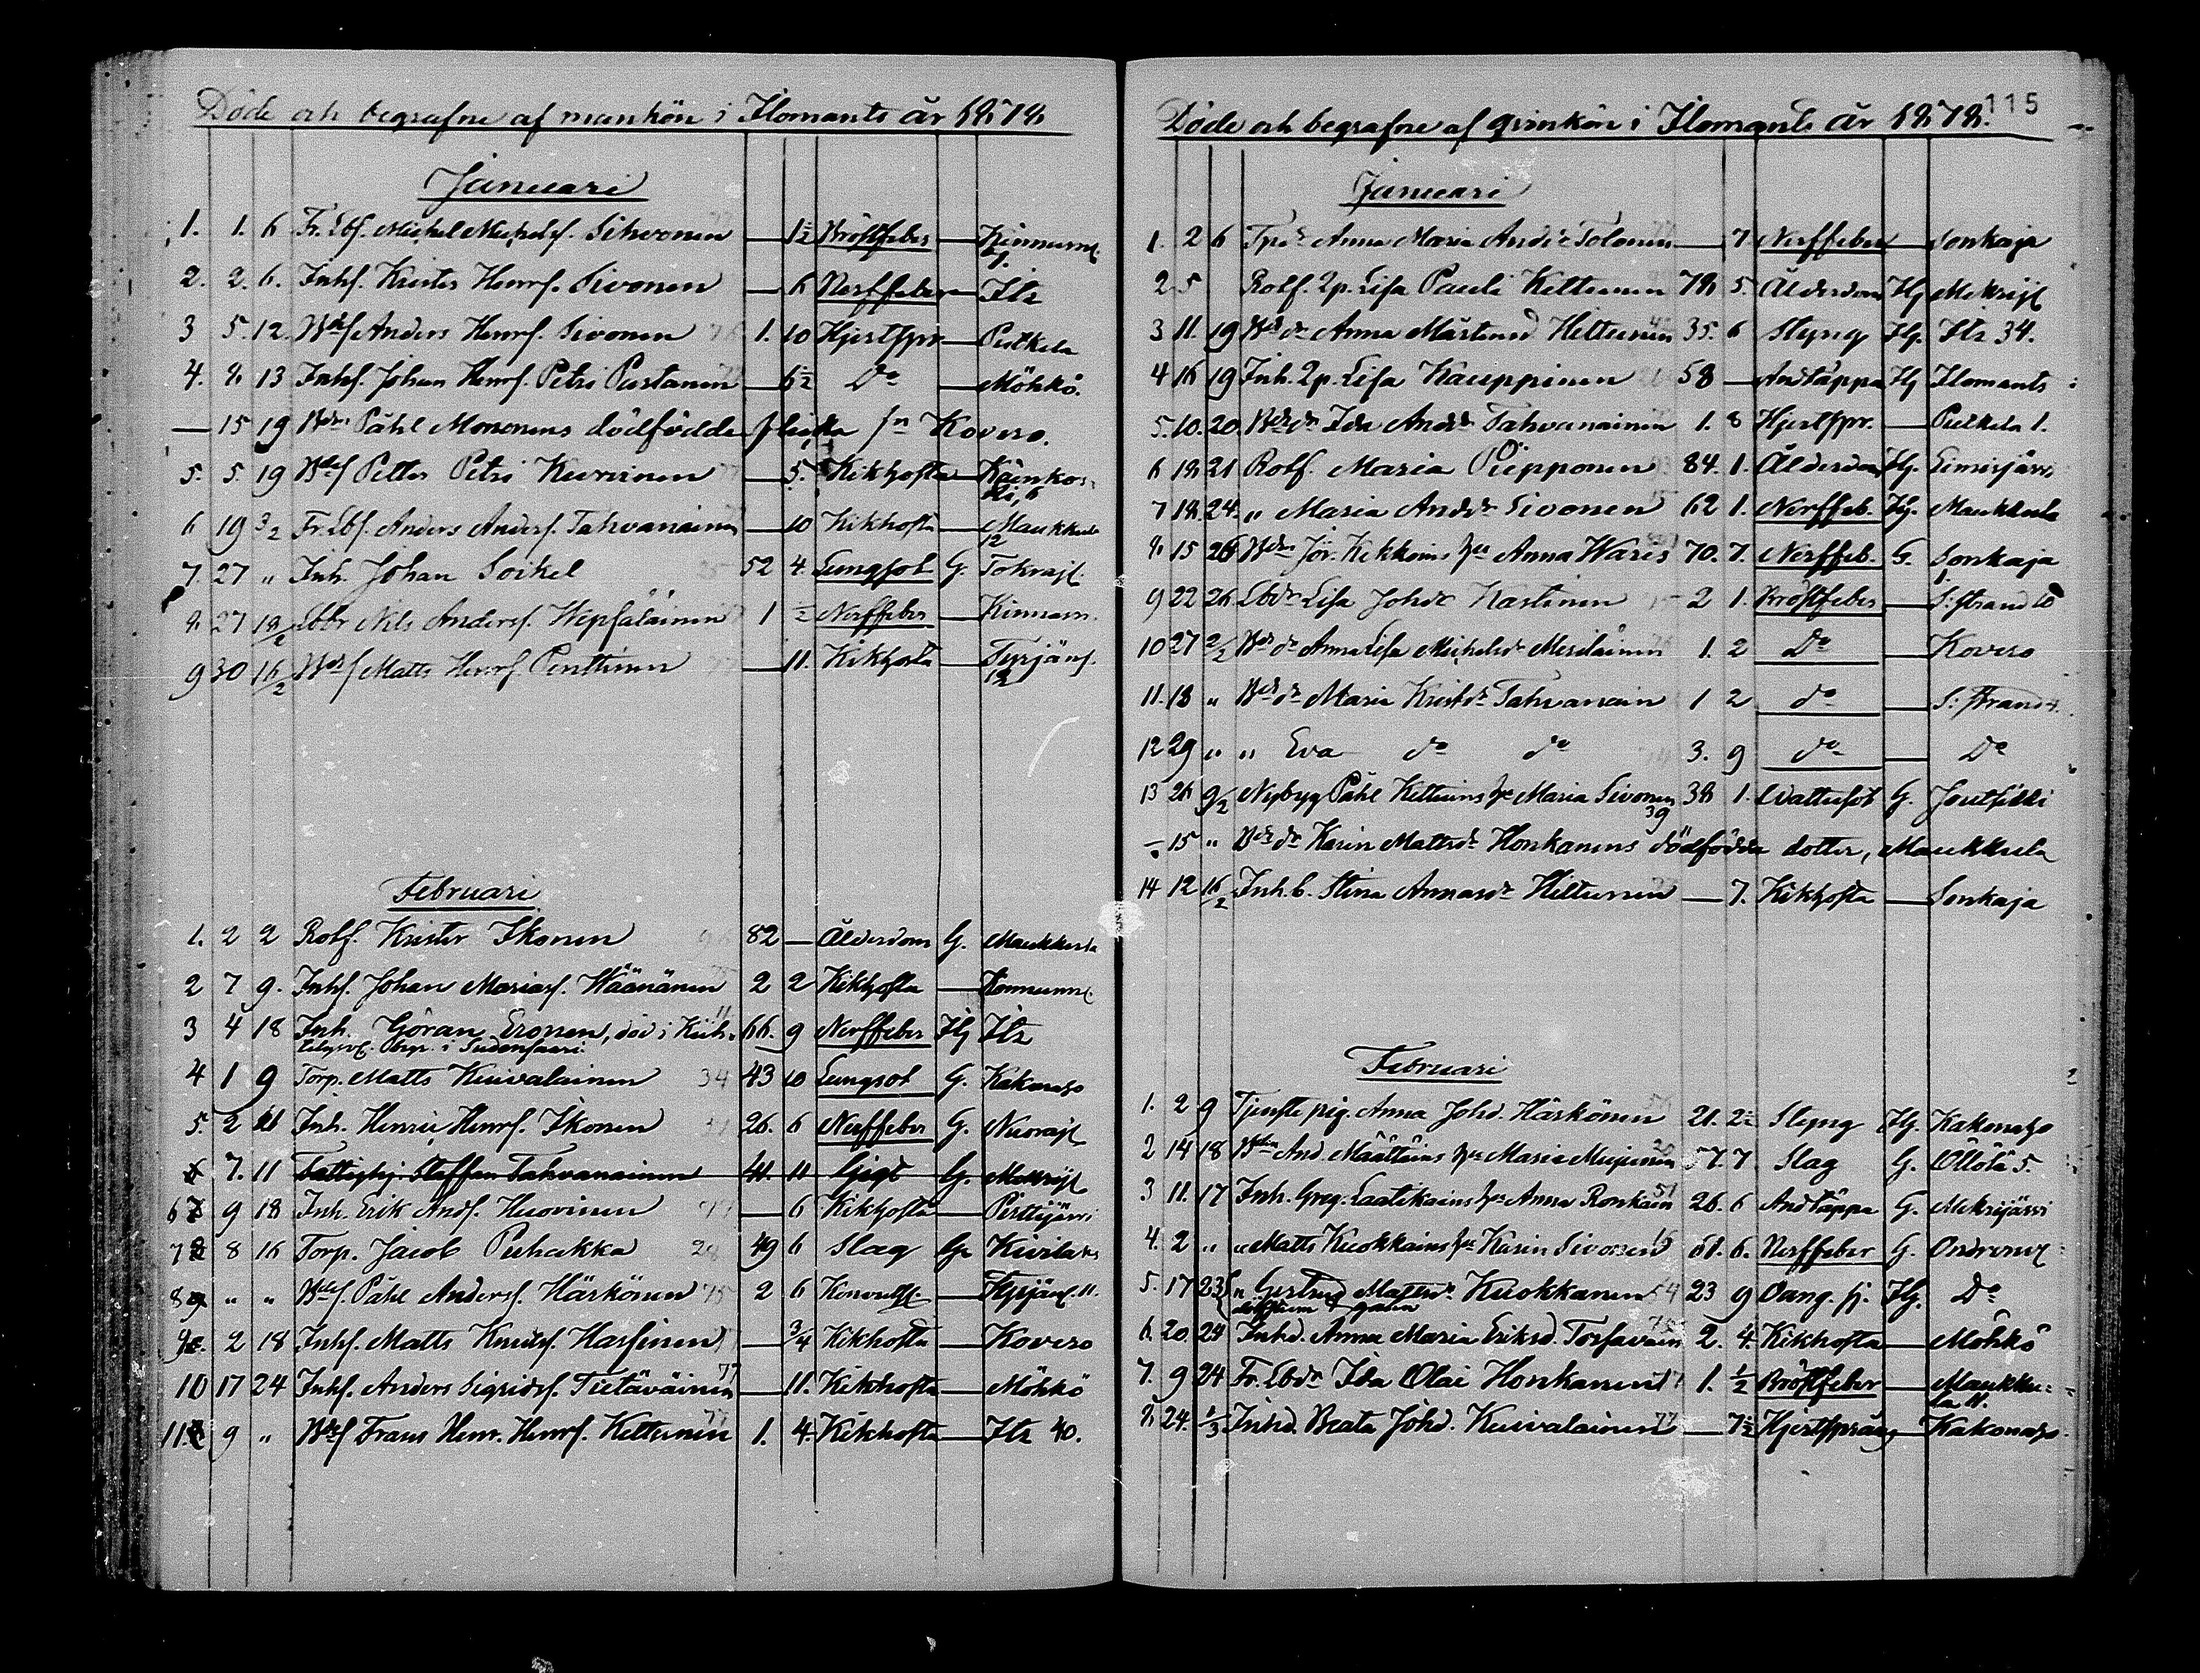 Döde och begrafne af mankön i Ilomants år 1878
Januari
1. 1. 6 Fr. Lbs. Michel Michels. Sihvonen — 1½ Bröstfeber — Kinnumn.
2. 2. 6. Inhs. Krister Henrs. Sivonen — 6 Nerffeber — Ilz
3 5. 12. Bdes Anders Henrs. Sivonen 1. 10 Hjertspr. — Putkela
4. 8 13 Inhs. Johan Henrs. Petri Pastanen — 6½ Do — Möhkö.
— 15 19 Bdes Påhl Mononens dödfödda flicka fn Kovero.
5. 5. 19 Bdes Petter Petri Kurvinen — 5. Kikhosta — Käenkos-
ki, 6
6 19 3/2 Fr. Lbs. Anders Anders. Tahvanainen — 10 Kikhosta — Maukkula
12
7. 27 " Inh. Johan Soikel 52 4. Lungsot G. Tokrajl.
8. 27 18/2 Lbbr Nils Anders. Hepsäläinen 1 ½ Nerffeber — Kinnarn.
9 30 16/2 Bdes Matts Henrs. Penttinen — 11. Kikhosta — Tyrjäns.
12
Februari
1. 2 2 Rolf. Krister Ikonen 82 — Ålderdom G. Maukkula
2 7 9. Inhs. Johan Marias. Wäänänen 2 2 Kikhosta — Konnunn.
3 4 18 Inh. Göran Eronen, död i Kiih- 66. 9 Nerffeber Hj Ilz
4 1 9 Torp. Matts Kuivalainen 34 43 10 Lungsot G. Kakonaho
5. 2 11 Inh. Henric Henrs. Ikonen 26. 6 Nerffeber G. Nuorajl
6 7. 11 Fattighj. Staffan Tahvanainen 41. 11 Gigt G. Mekrijl
6 9 18 Inh. Erik Ands. Huovinen — 6 Kikhosta — Pirttijärvi
7 8 16 Torp. Jacob Puhakka 28 49 6 Slag G. Kivilaks
8 " " Bdes. Påhl Anders. Härkönen 75 2 6 Konvuls. — Tyrjäns. 11.
9 2 18 Inhs. Matts Knuts. Hassinen — ¾ Kikhosta — Kovero
10 17 24 Inhs. Anders Sigrids. Tietäväinen 77 — 11. Kikhosta — Möhkö
11. 9 " Bdes Frans Henr. Henrs. Kettunen 77 1. 4. Kikhosta — Ilz 40.
115
Döde och begrafne af qvinkön i Ilomants år 1878.
Januari
1. 2 6 Tpdr Anna Maria Andrs Tolonen — 7 Nerffeber — Sonkaja
2 5 Rolf. 2p. Lisa Pauli Kettunen 78 5. Ålderdom Hj Mekrijl
3 11. 19 Bdsdr Anna Mårtensd Hiltunen 35. 6 Styng Hj. Ilz 34.
4 16 19 Inh. 2p. Lisa Kauppinen 58 — Andtäppa Hj Ilomants
5. 10. 20. Bdsdr Ida Andrs Tahvanainen 1. 8 Hjertspr. — Putkela 1.
6 18 21 Rolf. Maria Piipponen 84. 1. Ålderdom Hj. Liusvjärvi
7 18. 24. " Maria Andrs Sivonen 62 1. Nerffeb. Hj. Maukkula
8. 15 26 Bden Jör. Kekkoins hu Anna Waris 70. 7. Nerffeb. G. Sonkaja
9 22 26. Lbdr Lisa Johdr Hartinen 2 1. Bröstfeber — S: strand 10
10 27 2/2 Bdsdr Anna Lisa Michelsdr Meriläinen 1. 2 Do — Kovero
11. 18 " Bdsdr Maria Kristdr Tahvanain 1 2 do — S: strand 4.
12 29 " " Eva do do 3. 9 do — Do
13 26 9/2 Nybyg Påhl Kettuins hu Maria Sivonen 38 1. Wattusot G. Joutfikki
39
— 15 " Bdsdr Karin Mattsdr Honkanens dödfödda dotter, Maukkula
14 12 16/2 Inh. b. Stina Annasdr Hiltunen — 7. Kikhosta — Sonkaja
Februari
1. 2 9 Tjenstepig. Anna Johd. Härkönen 21. 2½ Styng Hj. Kakonaho
2 14 18 Bden And. Määttäins hu Maria Mujunen 57. 7. Slag G. Ollola 5.
3 11. 17 Inh. Greg. Laatikains hu Anna Ronkain 51 26. 6 Andtäppa G. Mekrijärvi
4. 2 " " Matts Kuokkains hu Karin Sivonen 61. 6. Nerffeber G. Ondronv.
5. 17 23 " Gertrud Mattsdr Kuokkanen 54 23 9 Hj. Do
6. 20. 24 Inhd. Anna Maria Eriksd. Torsavain 2. 4. Kikhosta — Möhkö
7. 9 24 Fr. Lbdr Ida Olai Honkanen 1. ½ Bröstfeber — Maukku-
la 11.
8. 24. 1/3 Inhd. Beata Johd. Kuivalainen 77 — 7½ Hjertspräng — Kakonaho.